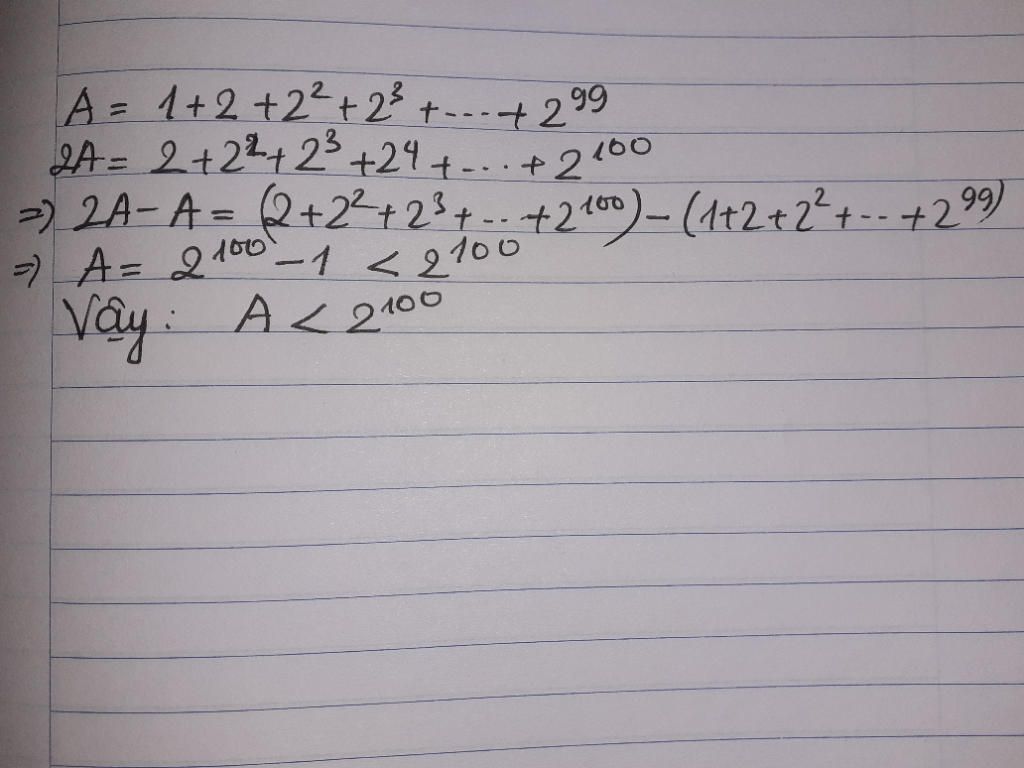 A = 1+2 +2² +2³ +....+ 2⁹⁹
2A = 2 +2²+ 2³ +2⁴ +... + 2¹⁰⁰
=> 2A - A = (2+2²+2³+...+2¹⁰⁰) - (1+2+2²+...+2⁹⁹)
=> A = 2¹⁰⁰ - 1 < 2¹⁰⁰
Vậy : A < 2¹⁰⁰